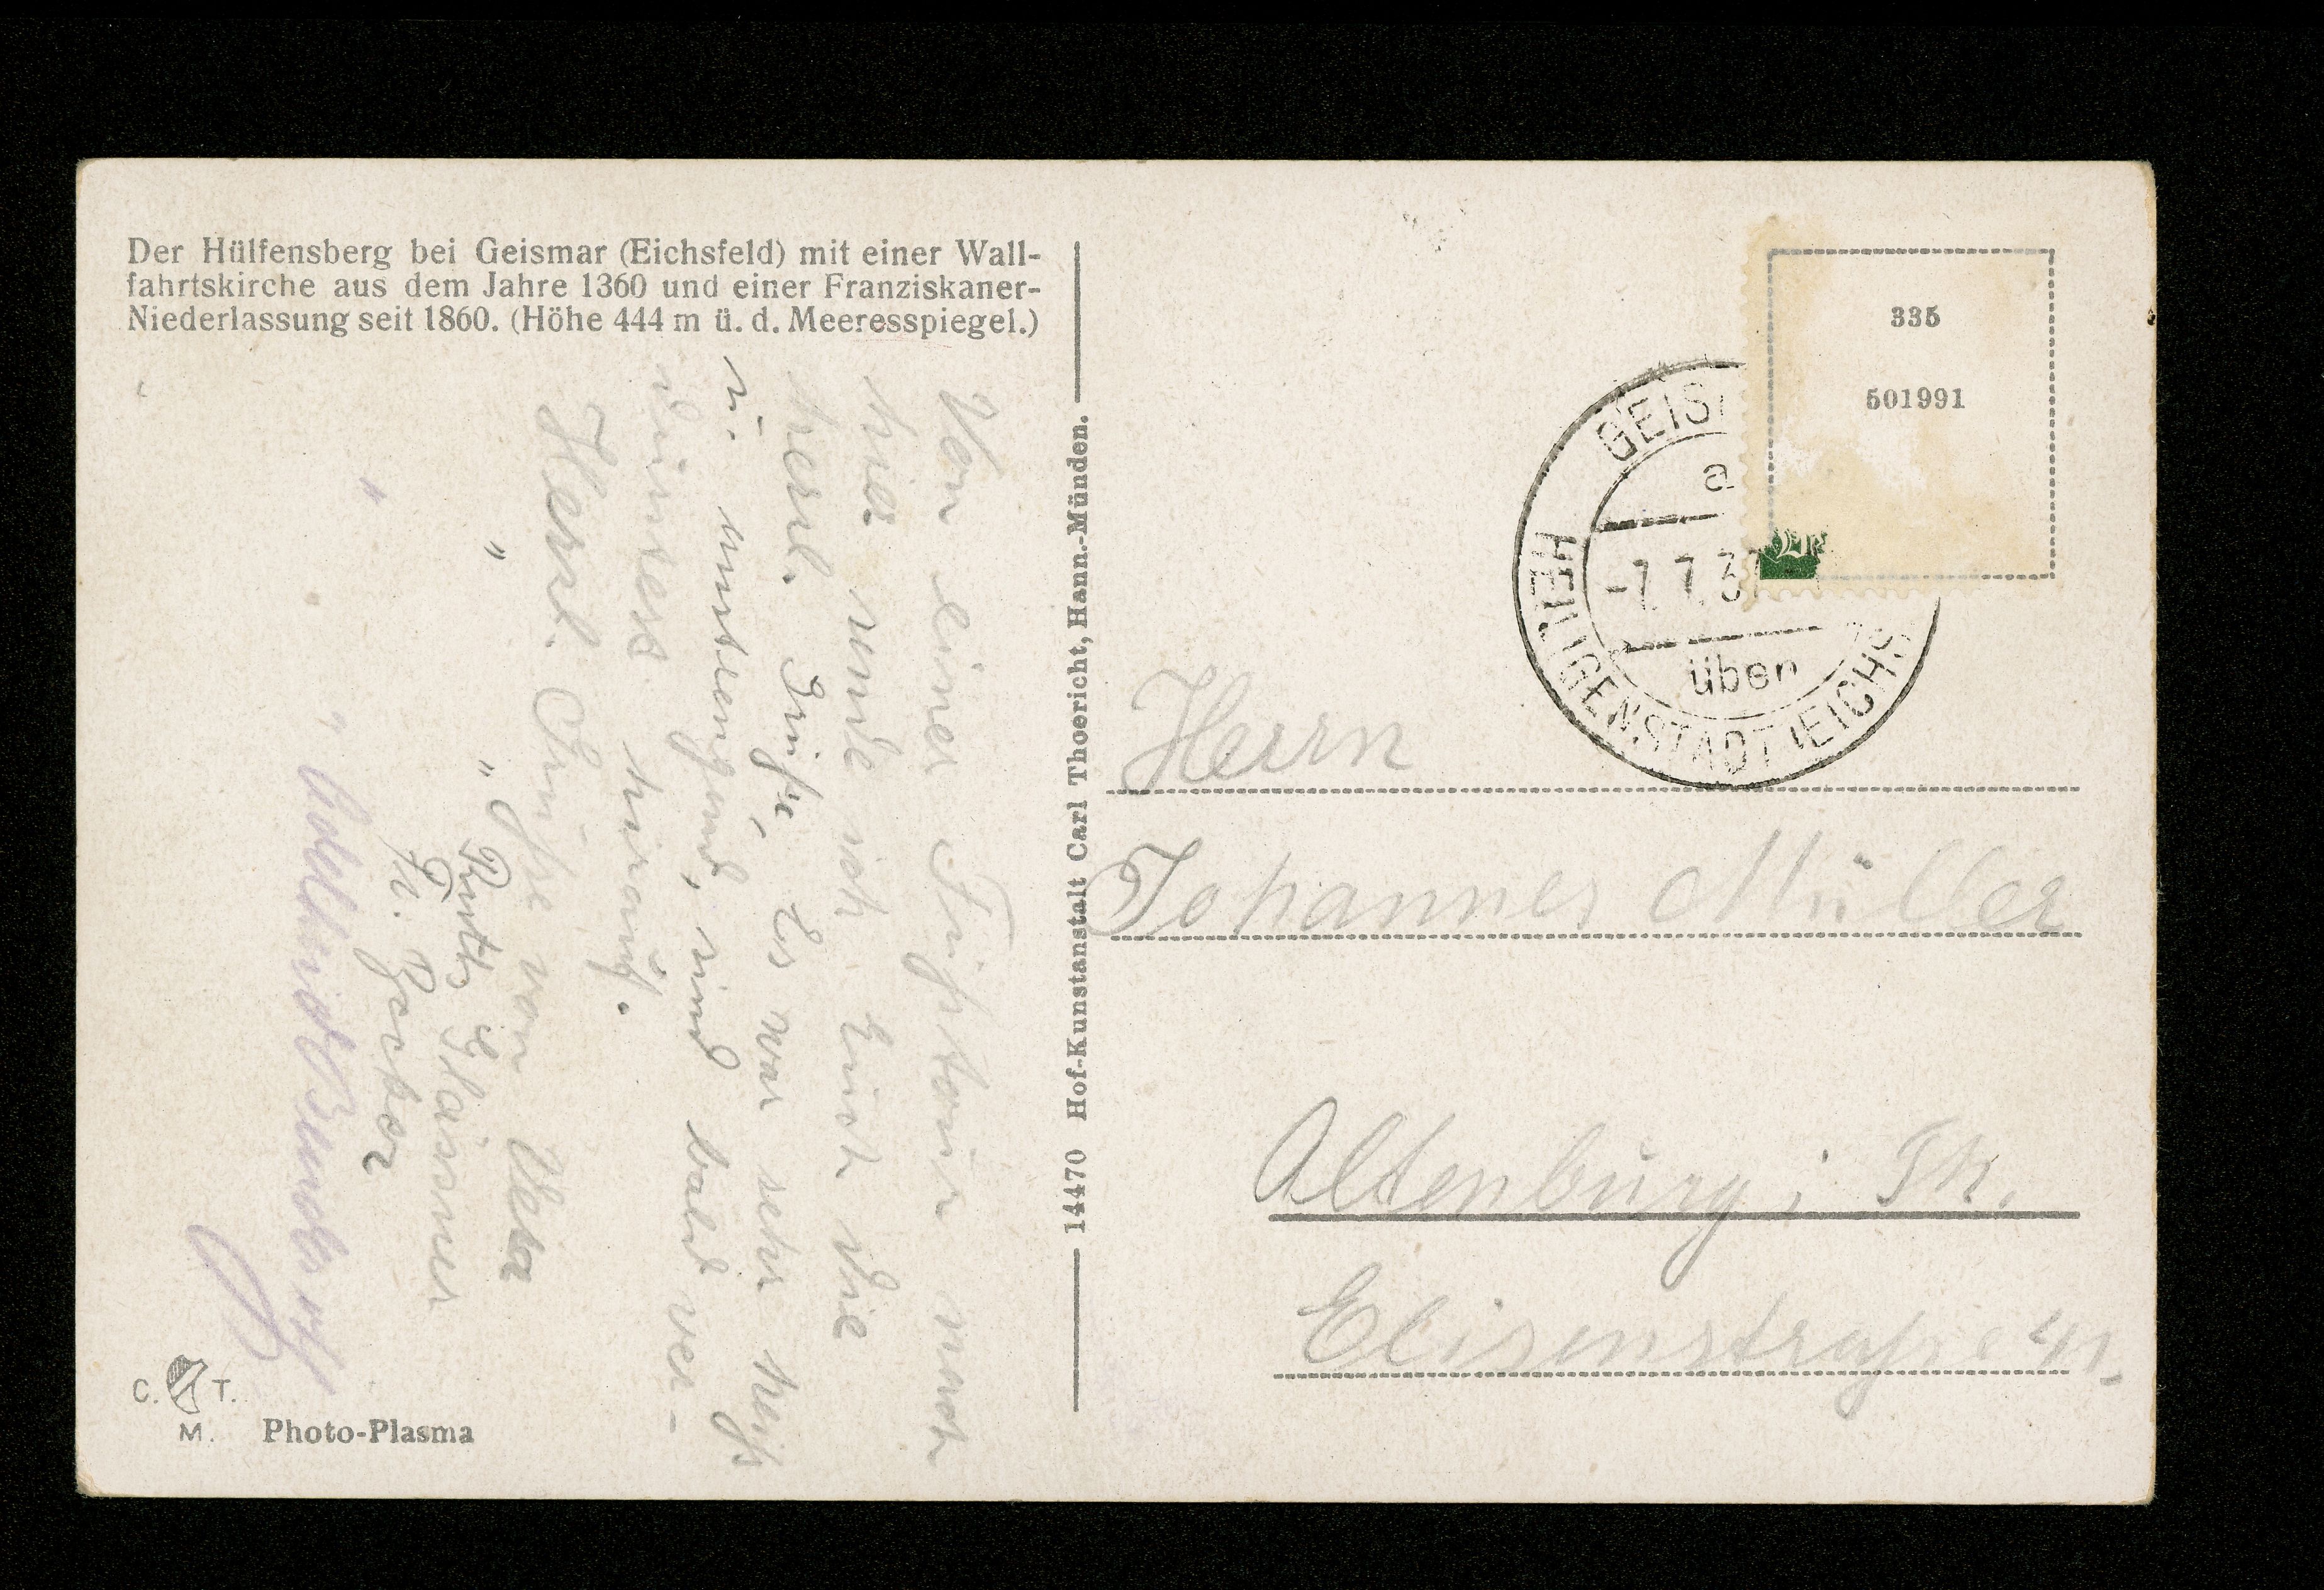 Der Hülfensberg bei Geismar (Eichsfeld) mit einer Wall-
fahrtskirche aus dem Jahre 1360 und einer Franziskaner-
Niederlassung seit 1860. (Höhe 444 m ü. d. Meeresspiegel.)
Von einer Fußtour nach
hier sende ich Euch die
herzl. Grüße, Es war sehr heiß
u. anstrengend, sind bald ver-
durch
Herzl. Grüße von
" " Ruth Glässner
" Fr.
"
C. T.
M. Photo-Plasma
14470 Hof-Kunstanstalt Carl Thoericht, Hann.-Münden.
335
501991
GEIS
a
-7.7.3
über
HEILIGENSTADT (EICHS
Herrn
Johannes Müller
Altenburg i. Th.
Elisenstraße 41.